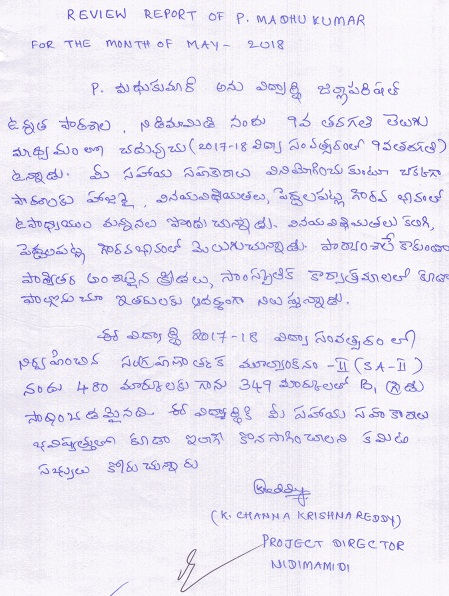 REVIEW REPORT OF P. MADHU KUMAR
FOR THE MONTH OF MAY - 2018
P. మధుకుమార్ అను విద్యార్థి జిల్లాపరిషత్
ఉన్నత పాఠశాల, నిడిమామిడి నందు 9వ తరగతి తెలుగు
మాధ్యమం లో చదువుచు (2017-18 విద్యా సంవత్సరంలో 9వతరగతి)
ఉన్నాడు. మీ సహాయ సహకారాలు వినియోగించుకుంటూ చక్కగా
పాఠశాలకు హాజరై, వినయవిధేయతలు, పెద్దలపట్ల గౌరవ భావంతో
ఉపాధ్యాయుల మన్ననలు పొందుచున్నాడు. వినయవిధేయతలు కలిగి,
పెద్దలపట్ల గౌరవభావంతో మెలుగుచున్నాడు. పాఠ్యాంశాలే కాకుండా
పాఠ్యేతర అంశాలైన క్రీడలు, సాంస్కృతిక కార్యక్రమాలలో కూడా
పాల్గొనుచూ ఇతరులకు ఆదర్శంగా నిలుస్తున్నాడు.
ఈ విద్యార్థి 2017-18 విద్యా సంవత్సరం లో
నిర్వహించిన సంగ్రహణాత్మక మూల్యాంకనం -II (SA-II)
నందు 480 మార్కులకు గాను 349 మార్కులతో B1 గ్రేడు
సాధించడమైనది. ఈ విద్యార్థికి మీ సహాయ సహకారాలు
భవిష్యత్తులో కూడా ఇలాగే కొనసాగించాలని కమిటీ
సభ్యులు కోరుచున్నారు
(K. CHANNA KRISHNA REDDY)
PROJECT DIRECTOR
NIDIMAMIDI